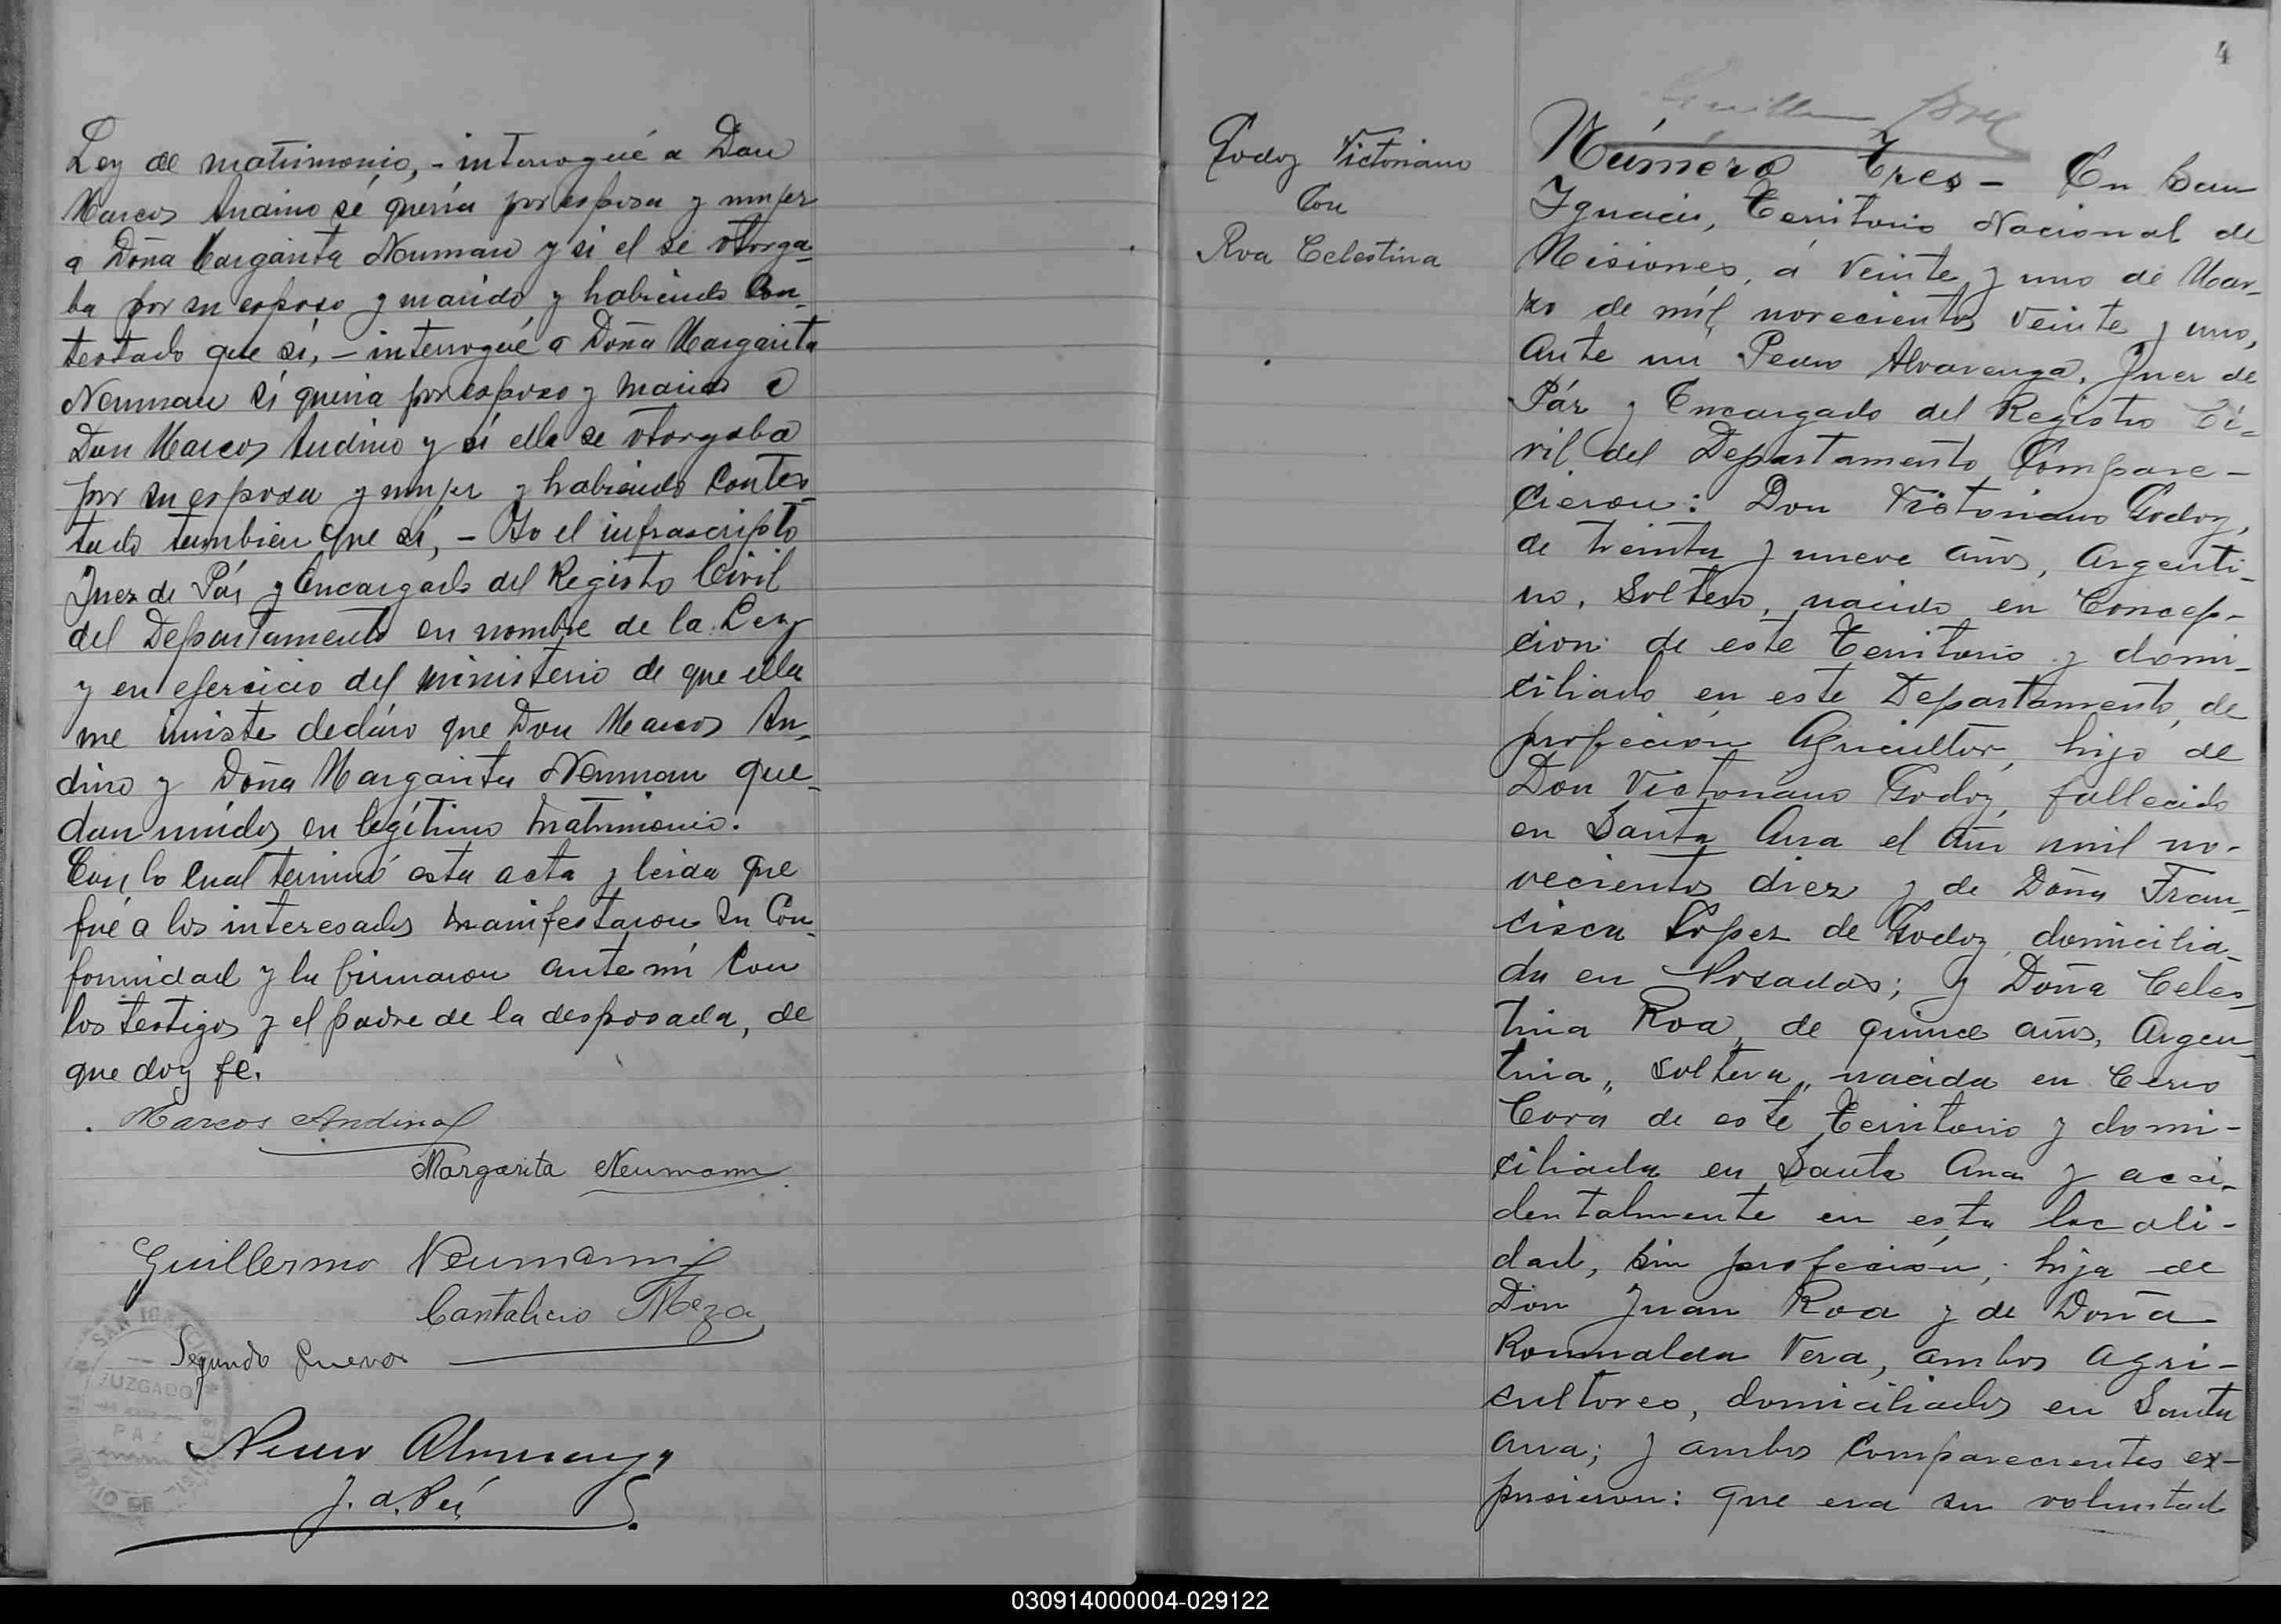 Ley de matrimonio, - interrogué a Don
Marcos Andino sé quería por esposa y mujer
a Doña Margarita Neuman y si el se otorga-
ba por su esposo y marido y habiendo Con-
testado que sí, - interrogué a Doña Margarita
Neuman sí queria por esposo y marido a
Don Marcos Andino y sí ella se otorgaba
por su esposa y mujer y habiendo Contes-
tado tambien que sí, - Yo el infrascripto
Juez de Páz y Encargado del Registo Civil
del Departamento en nombre de la Ley
y en ejercicio del ministerio de que ella
me inviste decláro que Don Marcos An-
dino y Doña Margarita Neuman que-
dan unidos en legítimo matrimonio.
Con lo Cual terminó esta acta y leida que
fué a los interesados manifestaron su Con-
formidad y la firmaron ante mí Con
los testigos y el padre de la desposada, de
que doy fé.
Marcos Andino
Margarita Neumann
Guillermo Neumann
Cantalicio Meza
Segundo Cuevas
SAN IGNACIO
JUZGADO
PAZ
J. d. Páz
4
Godoy Victoriano
Con
Roa Celestina
Número Tres - En San
Ignacio, Territorio Nacional de
Misiones, á veinte y uno de Mar-
zo de míl novecientos veinte y uno,
Ante mi Pedro Alvarenga, Juez de
Páz y Encargado del Registro Cí-
vil del Departamento Compare-
cieron: Don Victoriano Godoy,
de treinta y nueve años, Argenti-
no, soltero, nacido en Concep-
cion de este Territorio y domi-
ciliado en este Departamento, de
profeción Agricultor, hijo de
Don Victoriano Godoy, fallecido
en Santa Ana el año mil no-
vecientos diez y de Doña Fran-
cisca Lopez de Godoy, domicilia-
da en Posadas; y Doña Celes-
tina Roa, de quince años, Argen-
tina, soltera, nacida en Cerro
Corá de este Territorio y domi-
ciliada en Santa Ana y acci-
dentalmente en esta locali-
dad, sin profeción, hija de
Don Juan Roa y de Doña
Romualda Vera, ambos agri-
cultores, domiciliados en Santa
Ana; y ambos Comparecientes ex-
pusieron: que era su voluntad
030914000004-029122